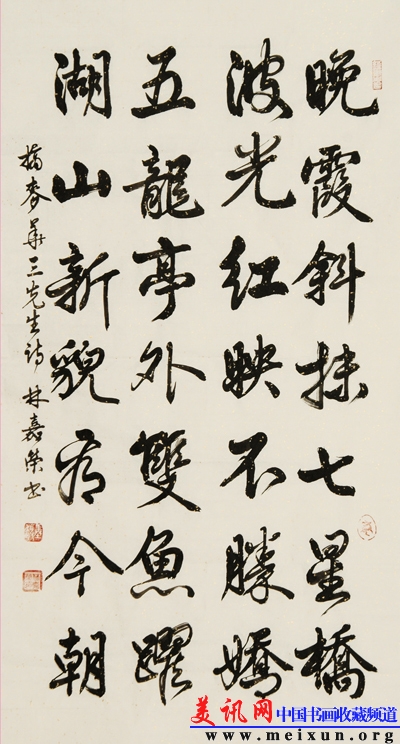 晚霞斜抹七星橋
波光紅映不勝嬌
五龍亭外雙魚躍
湖山新貌看今朝
楊春華三先生詩 林嘉榮書
美讯网
中国书画收藏频道
www.meixun.org